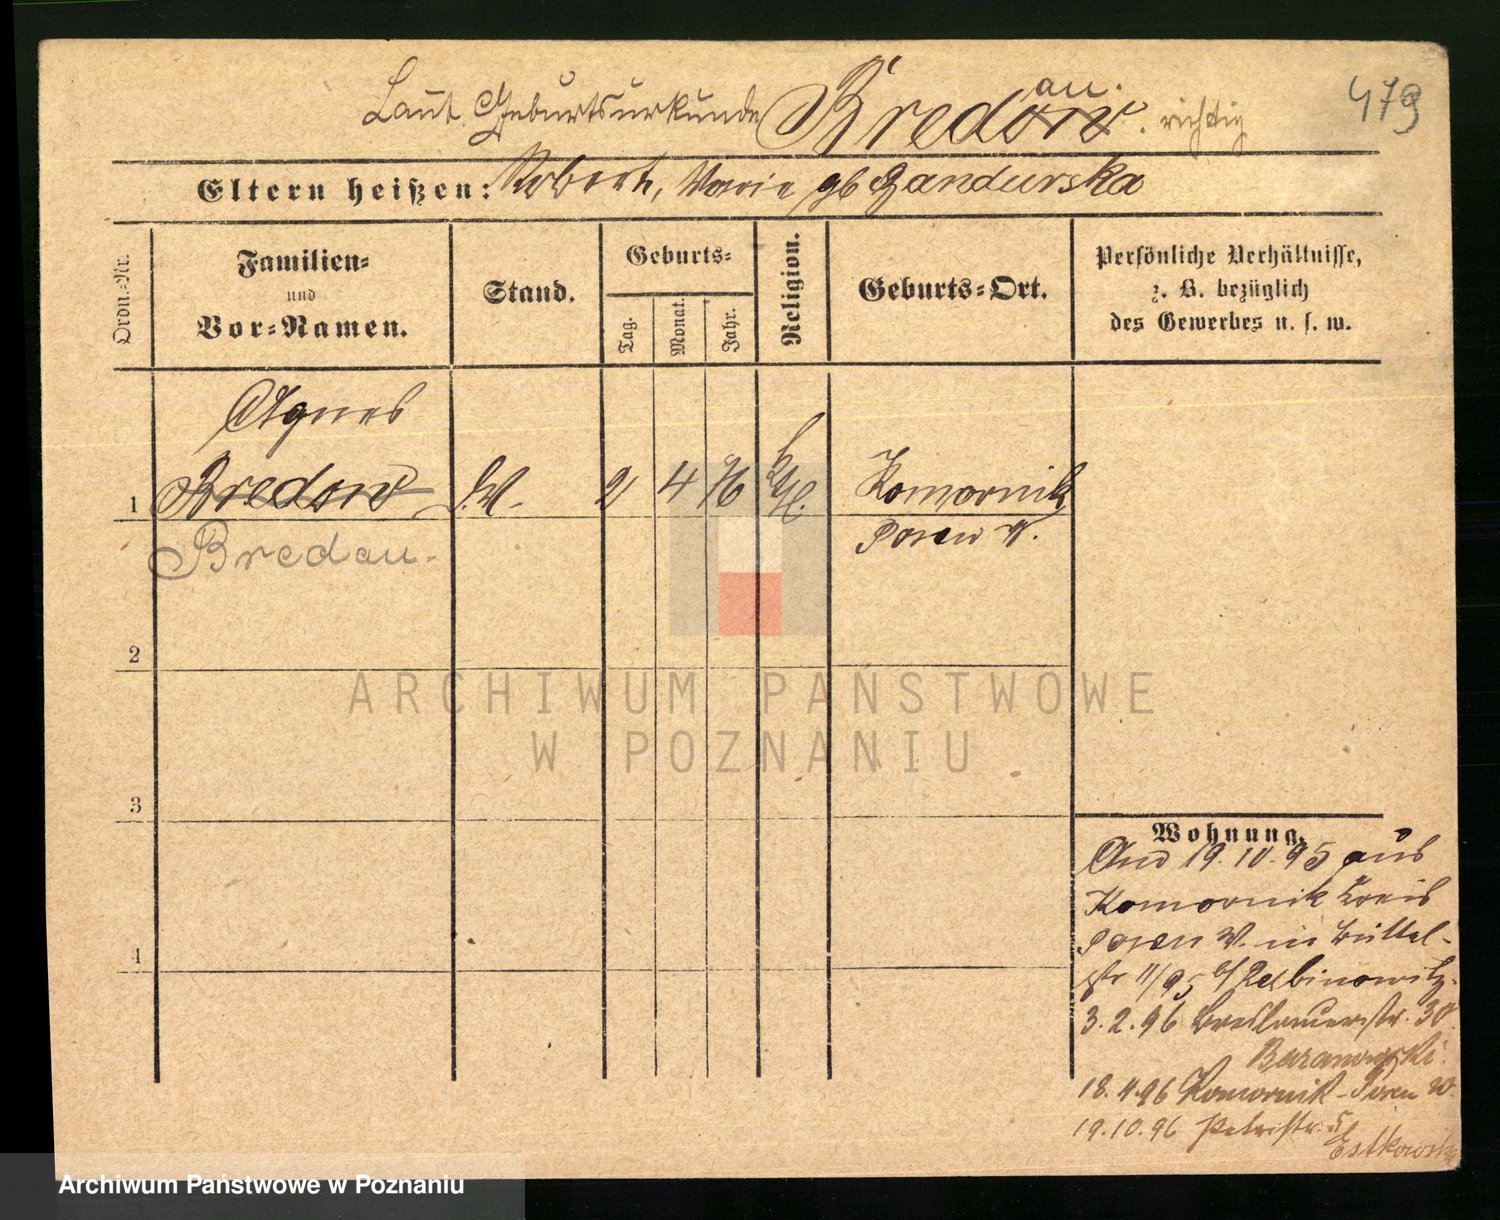 Laut Geburtsurkunde Bredow. au. richtig 479
Eltern heißen: Robert, Marie gb Gandurska
Ordn.-Nr.
Familien-
und
Vor-Namen.
Stand.
Geburts-
Tag.
Monat.
Jahr.
Religion.
Geburts-Ort.
Persönliche Verhältnisse,
z. B. bezüglich
des Gewerbes u. s. w.
Agnes
1 Bredow 2 4 76 Komornik
Bredau. Posen W.
2
3
4
ARCHIWUM PAŃSTWOWE
W POZNANIU
Wohnung.
19.10.95 aus
Komornik Kreis
Posen W. in Büttel-
str 11/95
3.2.96 Breslauerstr. 30
Baranowski.
18.4.96 Komornik-Posen W.
19.10.96 Petristr. 5
Archiwum Państwowe w Poznaniu